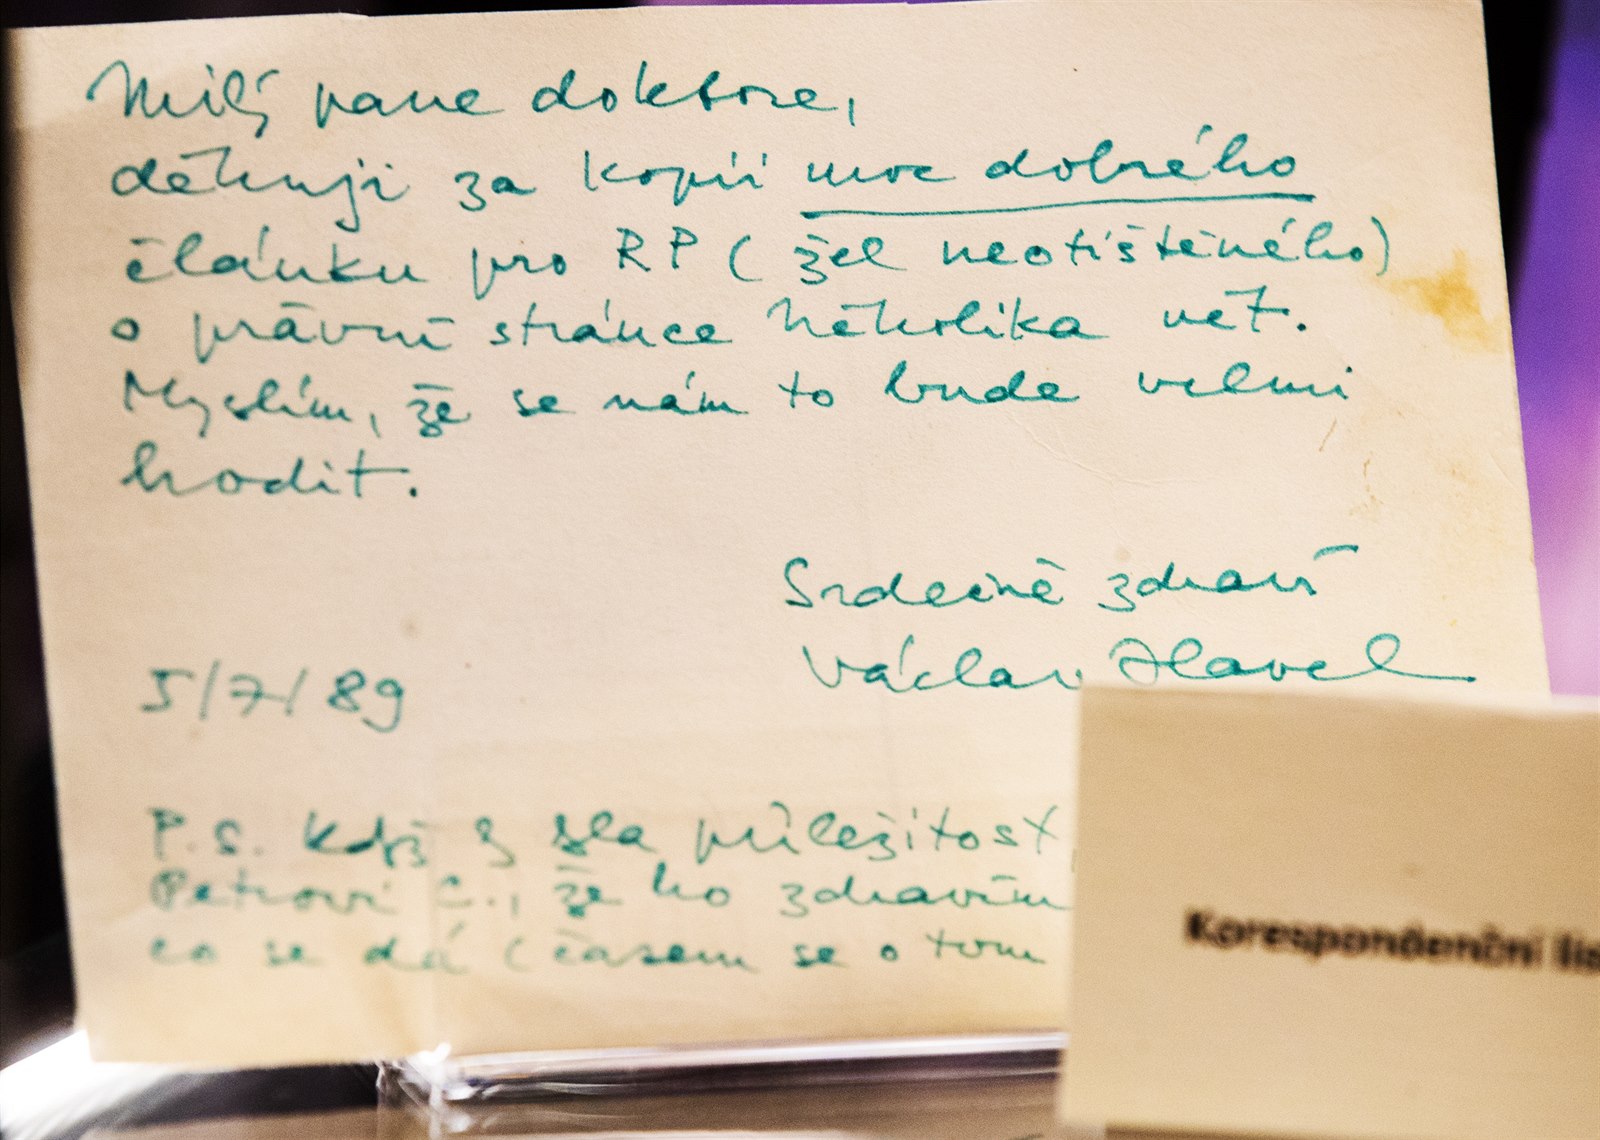 Milý pane doktore,
děkuji za kopii moc dobrého
článku pro RP (žel neotištěného)
o právní stránce Několika vět.
Myslím, že se nám to bude velmi
hodit.
Srdečně zdraví
Václav Havel
5/7/89
P.S. Když příležitost,
Petrovi že ho zdravím
co se dá (časem se o tom
Korespondenční